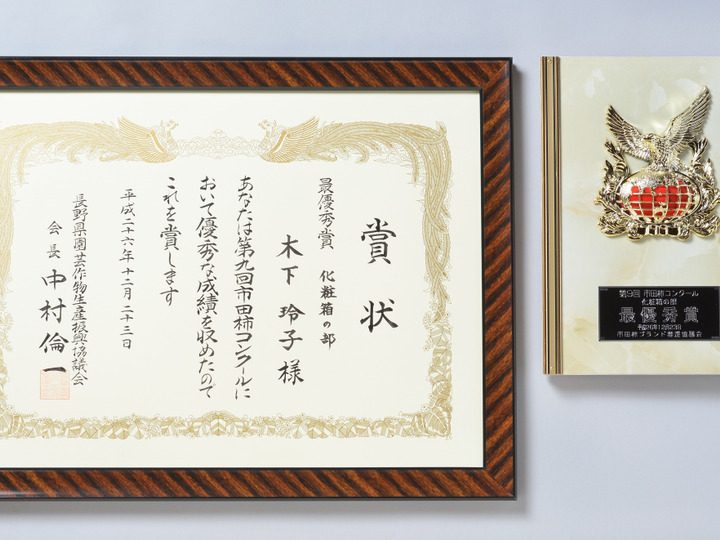 賞状
最優秀賞 化粧箱の部
木下 玲子 様
あなたは第九回市田柿コンクールに
おいて優秀な成績を収めたので
これを賞します
平成二十六年十二月二十三日
長野県園芸作物生産振興協議会
会長 中村倫一
第9回 市田柿コンクール
化粧箱の部
最優秀賞
平成26年12月23日
市田柿ブランド推進協議会